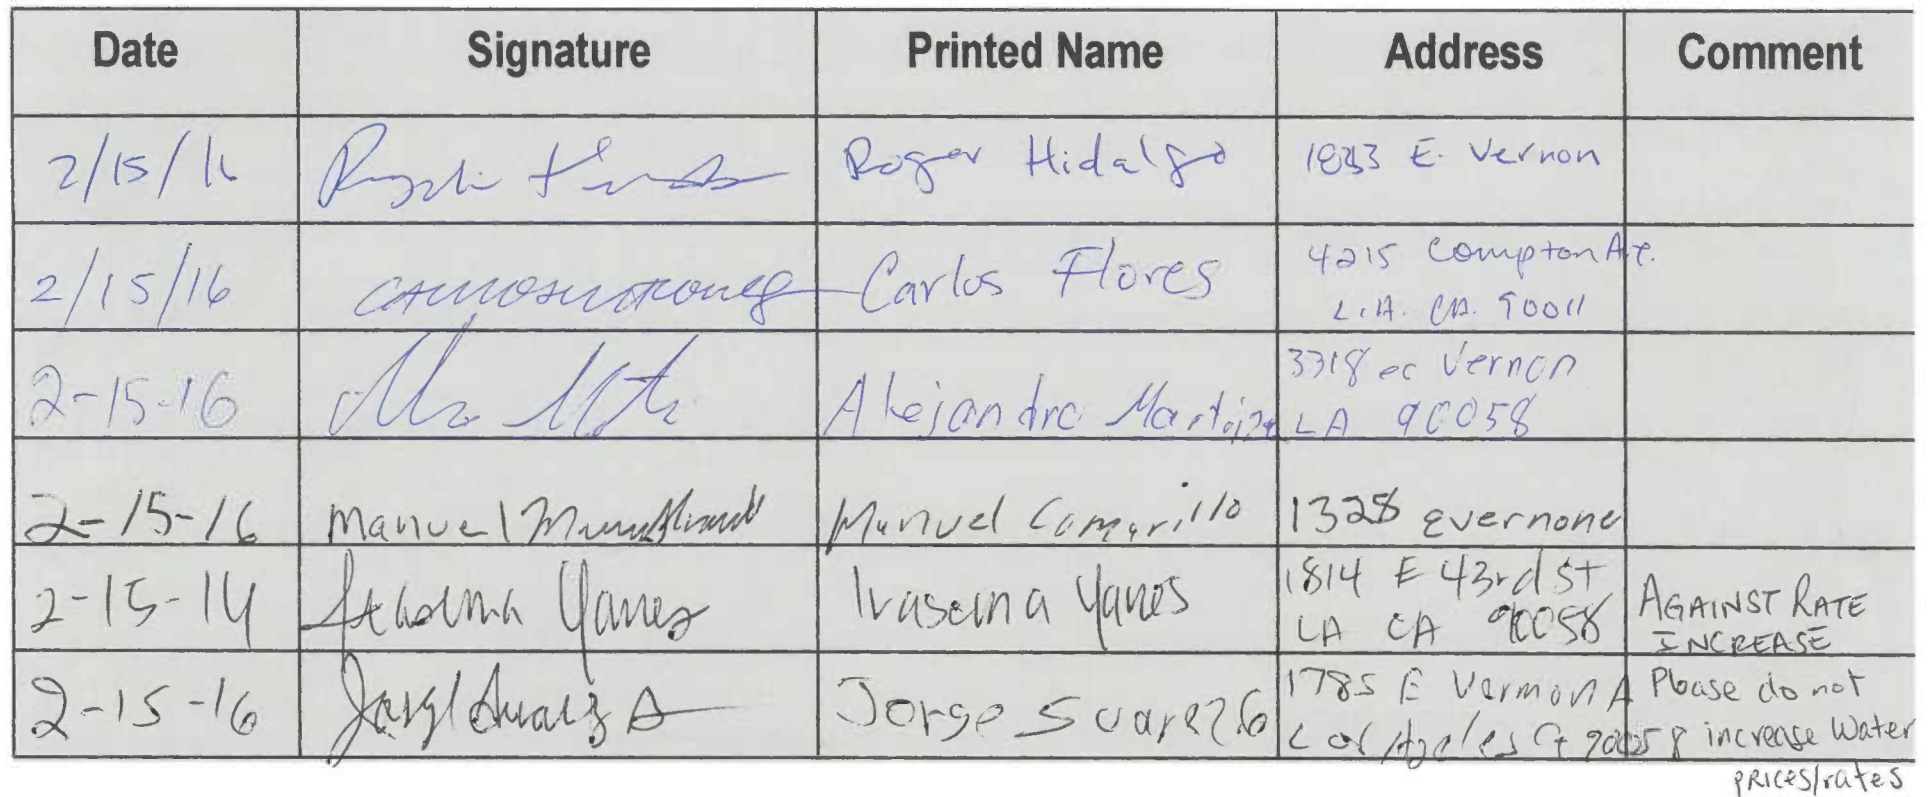 Date Signature Printed Name Address Comment
2/15/16 Roger Hidalgo 1833 E. Vernon
2/15/16 Carlos Flores 4215 Compton Ave.
L.A. CA. 90011
2-15-16 Alejandro 3318 Vernon
LA 90058
2-15-16 Manuel Manuel Camarillo 1328 Evernone
2-15-14 Yanes Yanes 1814 E 43rd ST
LA CA 90058
AGAINST RATE
INCREASE
2-15-16 Jorge Suarez 1785 E
90058
Please do not
increase Water
PRICES/rates